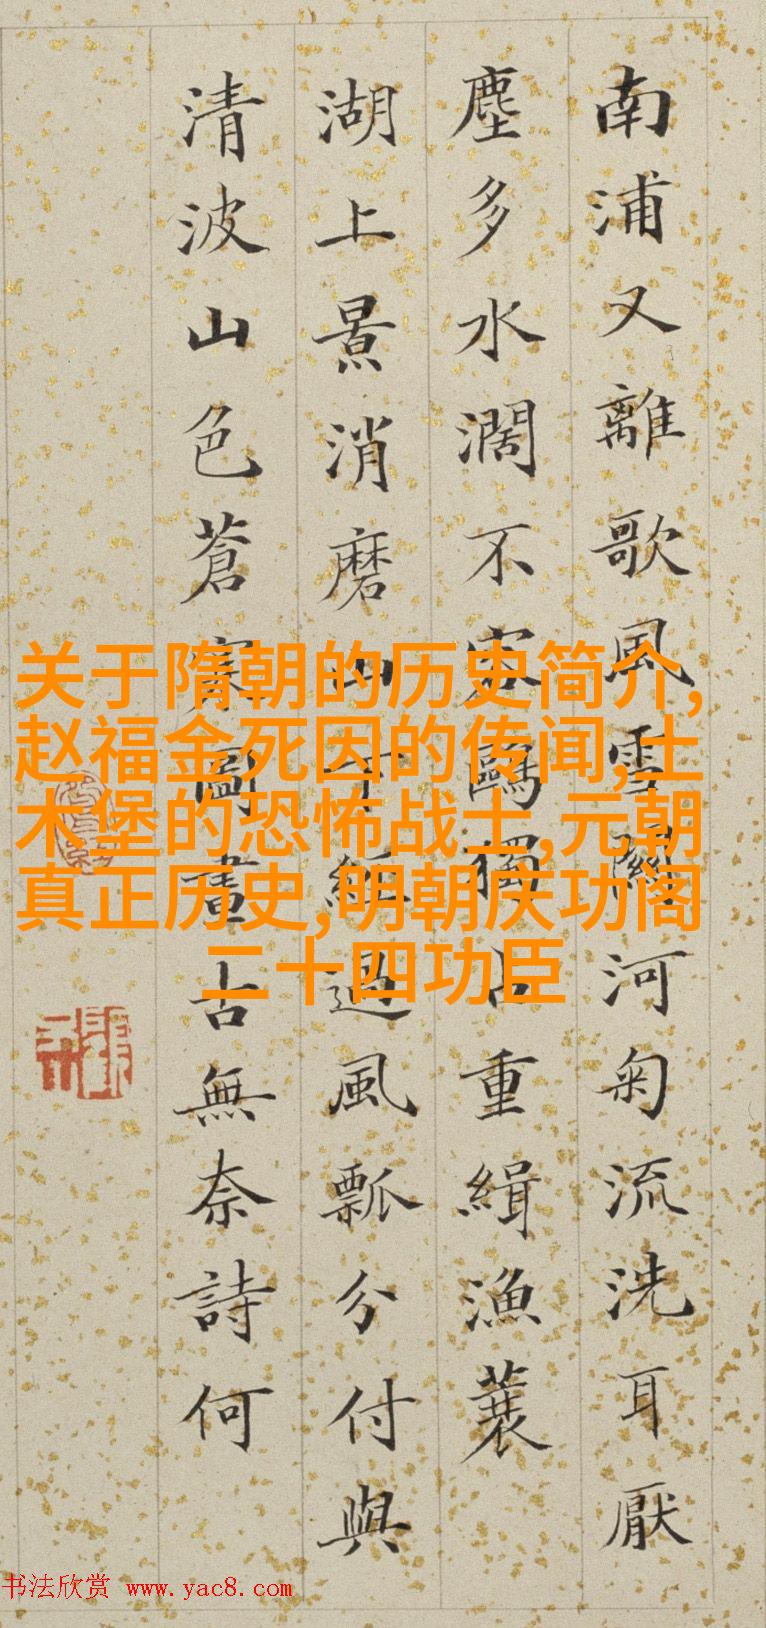 南浦又離歌風雪關河匊流洗耳厭
塵多水濶不容鷗獨占重緝漁蓑
湖上景消磨山下經過風瓢分付與
清波山色蒼寒圖畫古無奈詩何
关于隋朝的历史简介,
赵福金死因的传闻,土
木堡的恐怖战士,元朝
真正历史,明朝庆功阁
二十四功臣
书法欣赏 www.yac8.com